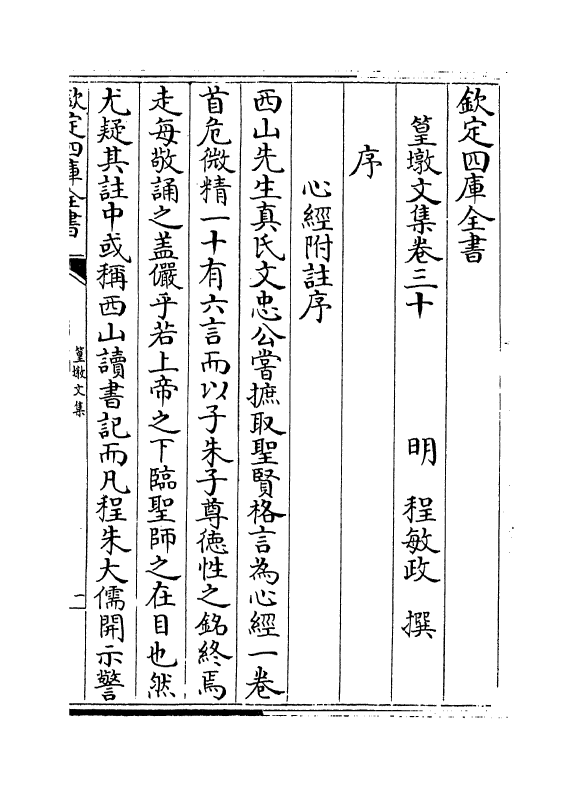 欽定四庫全書
篁墩文集卷三十
明 程敏政 撰
序
心經附註序
西山先生真氏文忠公嘗摭取聖賢格言為心經一卷
首危微精一十有六言而以子朱子尊徳性之銘終焉
走每敬誦之盖儼乎若上帝之下臨聖師之在目也然
尤疑其註中或稱西山讀書記而凡程朱大儒開示警
欽定四庫全書
篁墩文集
一